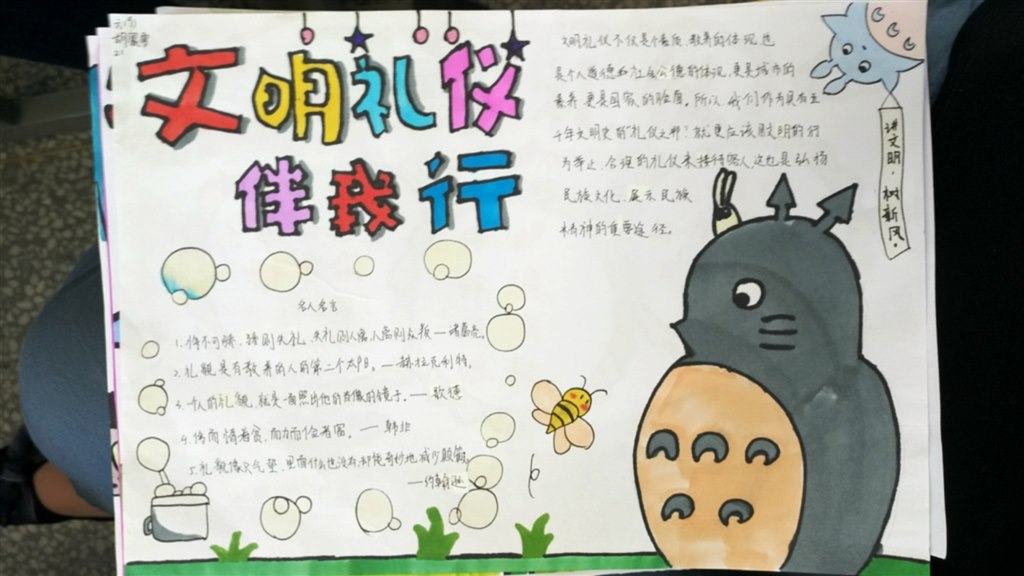 文明礼仪
伴我行
文明礼仪不仅是个素质、教养的体现，也
是个人道德和社会公德的体现，更是城市的
素养，更是国家的脸面。所以，我们作为具有五
千年文明史的"礼仪之邦"，就更应该用文明的行
为举止，合理的礼仪来接待客人，这也是弘扬
民族文化、展示民族
精神的重要途径。
讲文明，树新风。
名人名言
1、恃不可骄，骄则失礼，失礼则人离，人离则众叛—诸葛亮。
2、礼貌是有教养的人的第二个太阳。—赫拉克利特。
3、一个人的礼貌，就是一面照出他的肖像的镜子。—歌德
4、侈而惰者贫，而力而俭者富。—韩非
5、礼貌像只气垫，里面什么也没有，却能奇妙地减少颠簸
—约翰逊